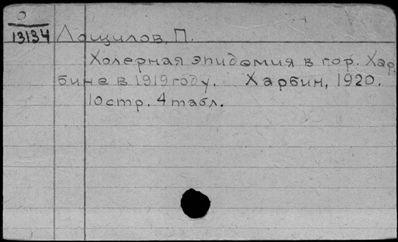 0
13134
Лощилов, П.
Холерная эпидемия в гор. Хар
бине в 1919 году. Харбин, 1920.
10 стр. 4 табл.